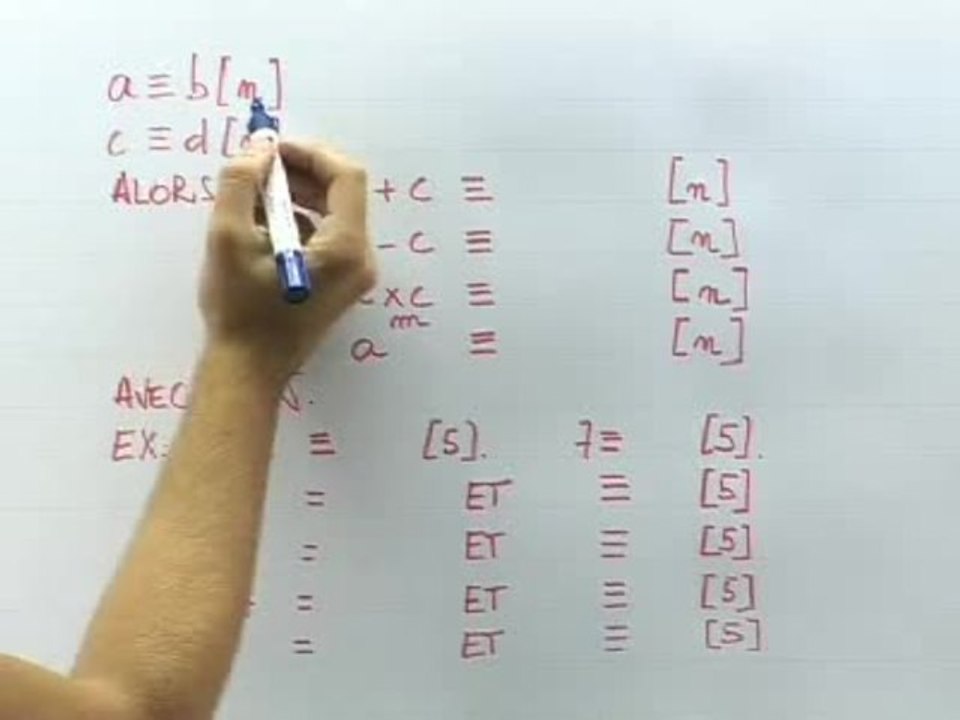 a ≡ b [n]
c ≡ d [
ALORS + c ≡ [n]
- c ≡ [n]
× c ≡ [n]
a^m ≡ [n]
AVEC
EX: ≡ [5]. 7 ≡ [5].
= ET ≡ [5]
= ET ≡ [5]
= ET ≡ [5]
= ET ≡ [5]